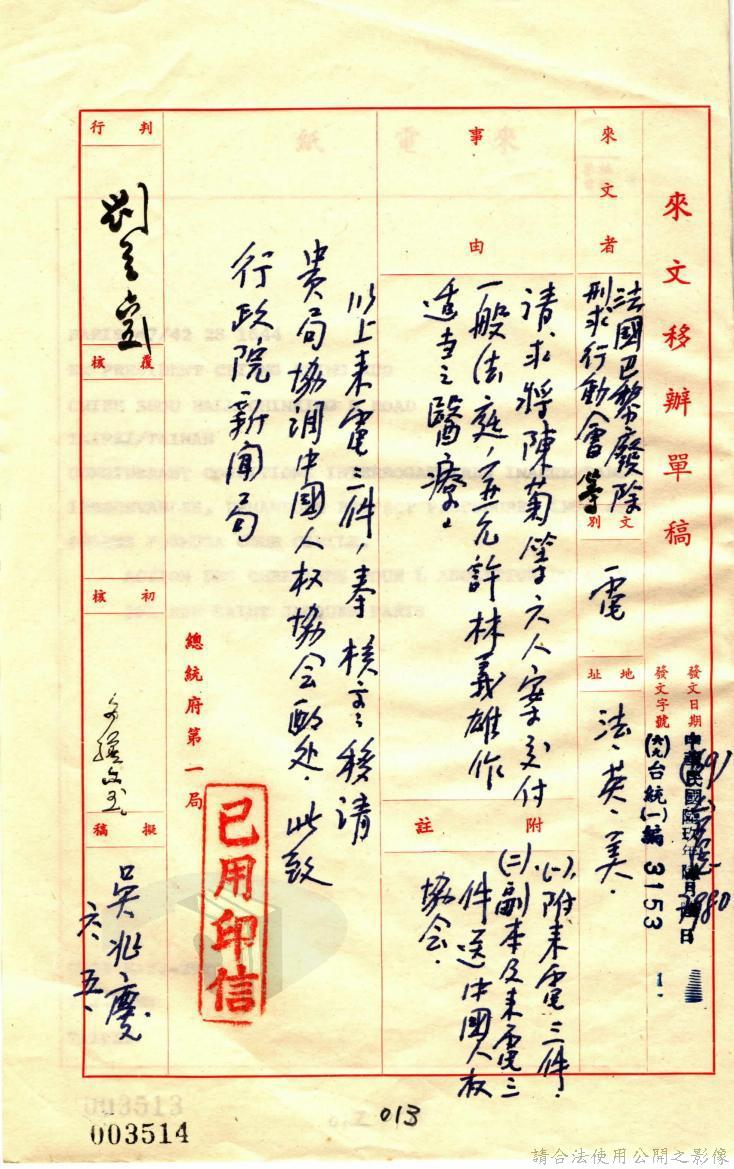 來文移辦單稿
來文者
法國巴黎廢除
刑求行動會等
文別
電
地址
法、英、美.
發文日期
中華民國陸玖年陸月 日
發文字號
(六九)台統(一)編 3153 1-
事由
請求將陳菊等六人案交付
一般法庭,並允許林義雄作
適當之醫療。
附註
(一)、附來電三件.
(二)副本及來電三
件送中國人权
協会.
以上來電三件,奉 核
移請
貴局協調中國人权協会酌处.此致
行政院新聞局
總統府第一局
已用印信
判行
覆核
初核
擬稿
吳兆慶
六、五、
003513
003514
013
請合法使用公開之影像